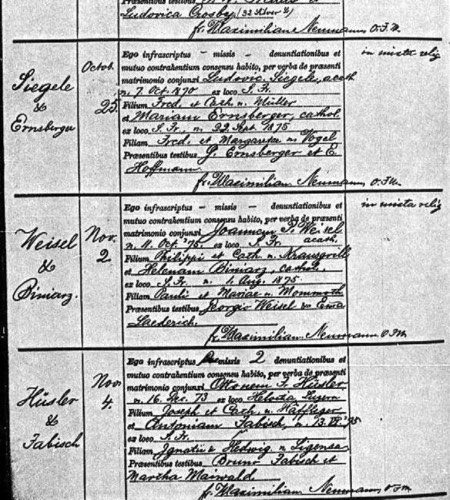 Ludovica Crosby (32 Silver St)
fr. Maximilianus Neumann O.F.M.
Siegele
&
Ernsberger
Octob.
25
Ego infrascriptus – missis – denuntiationibus et
mutuo contrahentium consensu habito, per verba de præsenti
matrimonio conjunxi Ludovic. Siegele, acath
n. 7. Oct. 1870 ex loco S. Fr.
Filium Fred. et Cath. n. Müller
et Mariam Ernsberger, cathol.
ex loco S. Fr. n. 22 Sept. 1875
Filiam Fred. et Margaretæ n. Vogel
Præsentibus testibus G. Ernsberger et E.
Hoffmann
fr. Maximilian Neumann, O.F.M.
in mixta relig
Weisel
&
Biniarz.
Nov.
2
Ego infrascriptus – missis – denuntiationibus et
mutuo contrahentium consensu habito, per verba de præsenti
matrimonio conjunxi Joannem P. Weisel
n. 11. Oct. '75. ex loco S. Fr. acath.
Filium Philippi et Cath n. Krausgrill
et Helenam Biniarz, cathol.
ex loco S. Fr. n. 1. Aug. 1875
Filiam Pauli et Mariae n. Mommroth
Præsentibus testibus Georgio Weisel & Ema
Laederich.
fr. Maximilian Neumann O.F.M.
in mixta relig
Hüsler
&
Fabisch
Nov.
4.
Ego infrascriptus præmissis 2 denuntiationibus et
mutuo contrahentium consensu habito, per verba de præsenti
matrimonio conjunxi Ottonem F. Hüsler
n. 16. Dec. 73 ex Helvetia Luzern
Filium Joseph et Cath. n. Häfliger
et Antoniam Fabisch, n.
ex loco S. Fr.
Filiam Ignatii & Hedwig n. Ligensa
Præsentibus testibus Bruno Fabisch et
Martha Maiwald.
fr. Maximilian Neumann O.F.M.